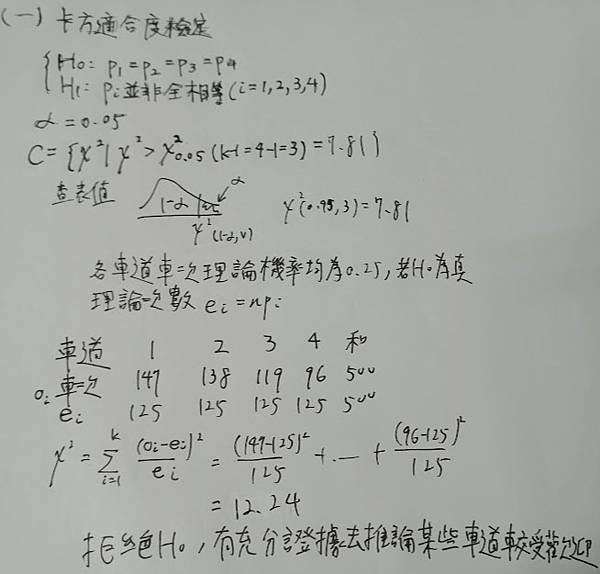 (一) 卡方適合度檢定
H₀: p₁=p₂=p₃=p₄
H₁: pᵢ並非全相等(i=1,2,3,4)
α=0.05
C={χ²|χ²>χ²₀.₀₅(k-1=4-1=3)=7.81}
查表值 1-α α χ²(1-α,ν) χ²(0.95,3)=7.81
各車道車次理論機率均為0.25,若H₀為真
理論次數 eᵢ=npᵢ
車道 1 2 3 4 和
oᵢ 車次 147 138 119 96 500
eᵢ 125 125 125 125 500
χ²=∑ᵢ₌₁ᵏ (oᵢ-eᵢ)²/eᵢ = (147-125)²/125 +…+ (96-125)²/125
=12.24
拒絕H₀,有充分證據去推論某些車道較受歡迎